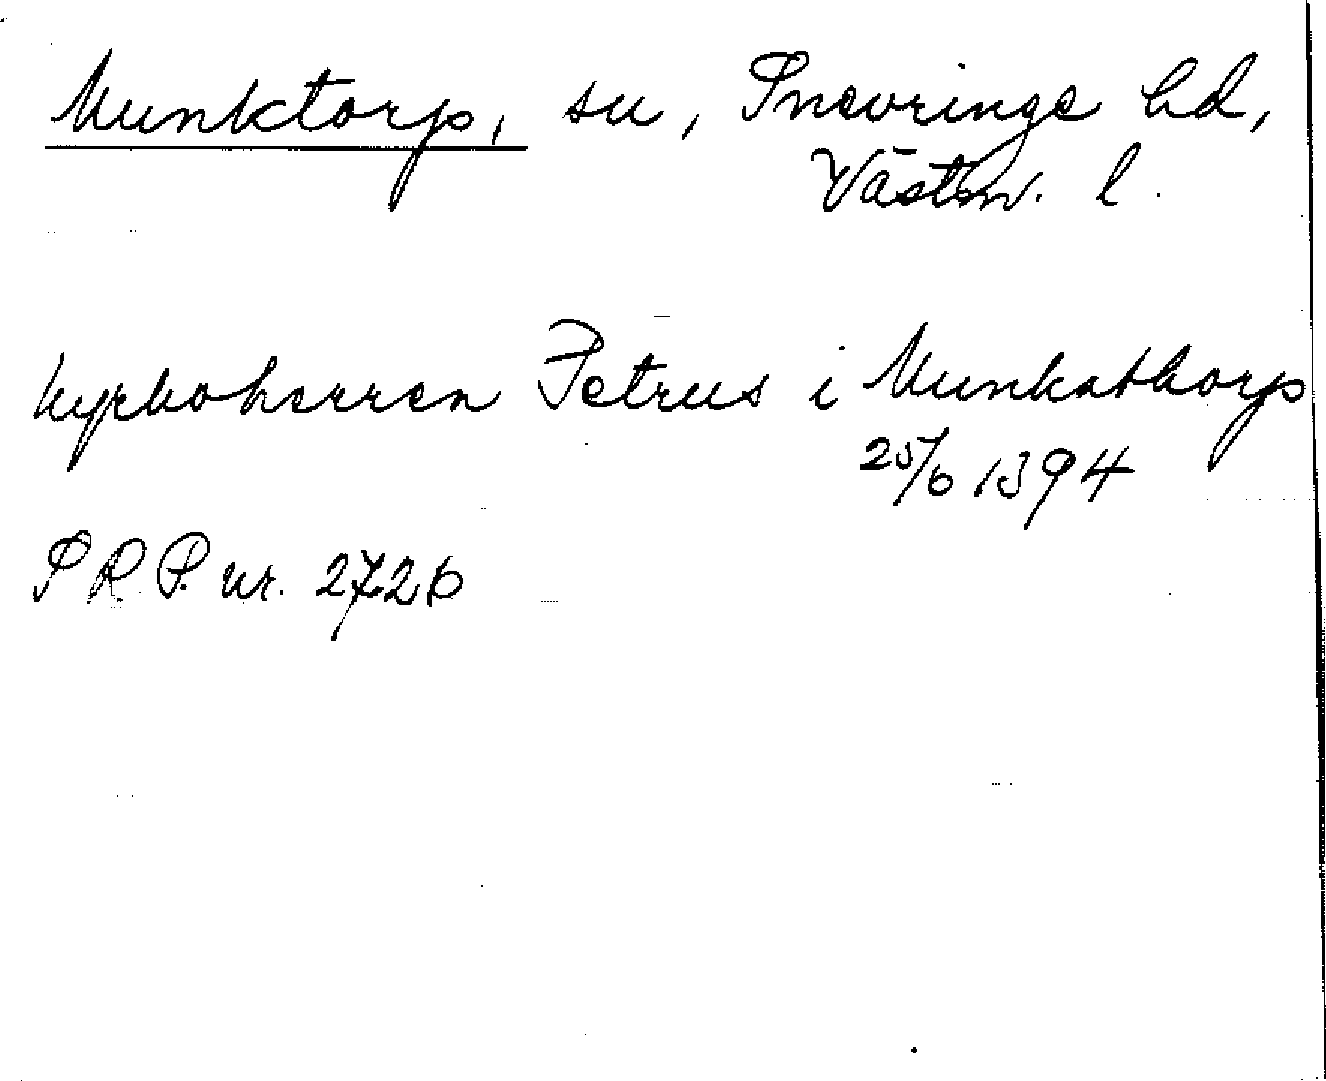 Munktorp, sn, Snevringe hd,
Västm. l.
kyrkoherren Petrus i Munkathorp
25/6 1394
S R. P. nr. 2726